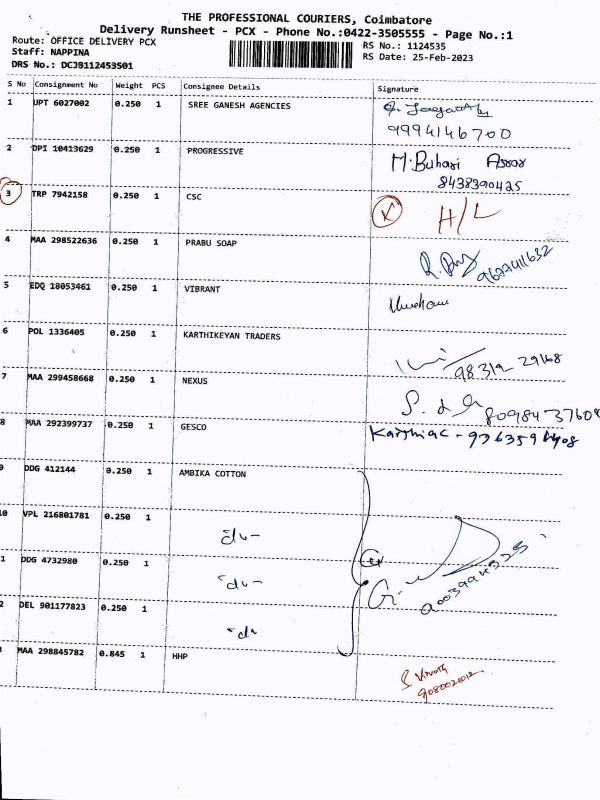 THE PROFESSIONAL COURIERS, Coimbatore
Delivery Runsheet - PCX - Phone No.:0422-3505555 - Page No.:1
Route: OFFICE DELIVERY PCX
Staff: NAPPINA
DRS No.: DCJB112453501
RS No.: 1124535
RS Date: 25-Feb-2023
S No Consignment No Weight PCS Consignee Details Signature
1 UPT 6027002 0.250 1 SREE GANESH AGENCIES
9994146700
2 DPI 10413629 0.250 1 PROGRESSIVE M. Buhari
8438390425
3 TRP 7942158 0.250 1 CSC H/L
4 MAA 298522636 0.250 1 PRABU SOAP
5 EDQ 18053461 0.250 1 VIBRANT
6 POL 1336405 0.250 1 KARTHIKEYAN TRADERS
98312 29168
7 MAA 299458668 0.250 1 NEXUS
80984 37604
8 MAA 292399737 0.250 1 GESCO
9 DDG 412144 0.250 1 AMBIKA COTTON
10 VPL 216801781 0.250 1
1 DDG 4732980 0.250 1
2 DEL 901177823 0.250 1
MAA 298845782 0.845 1 HHP